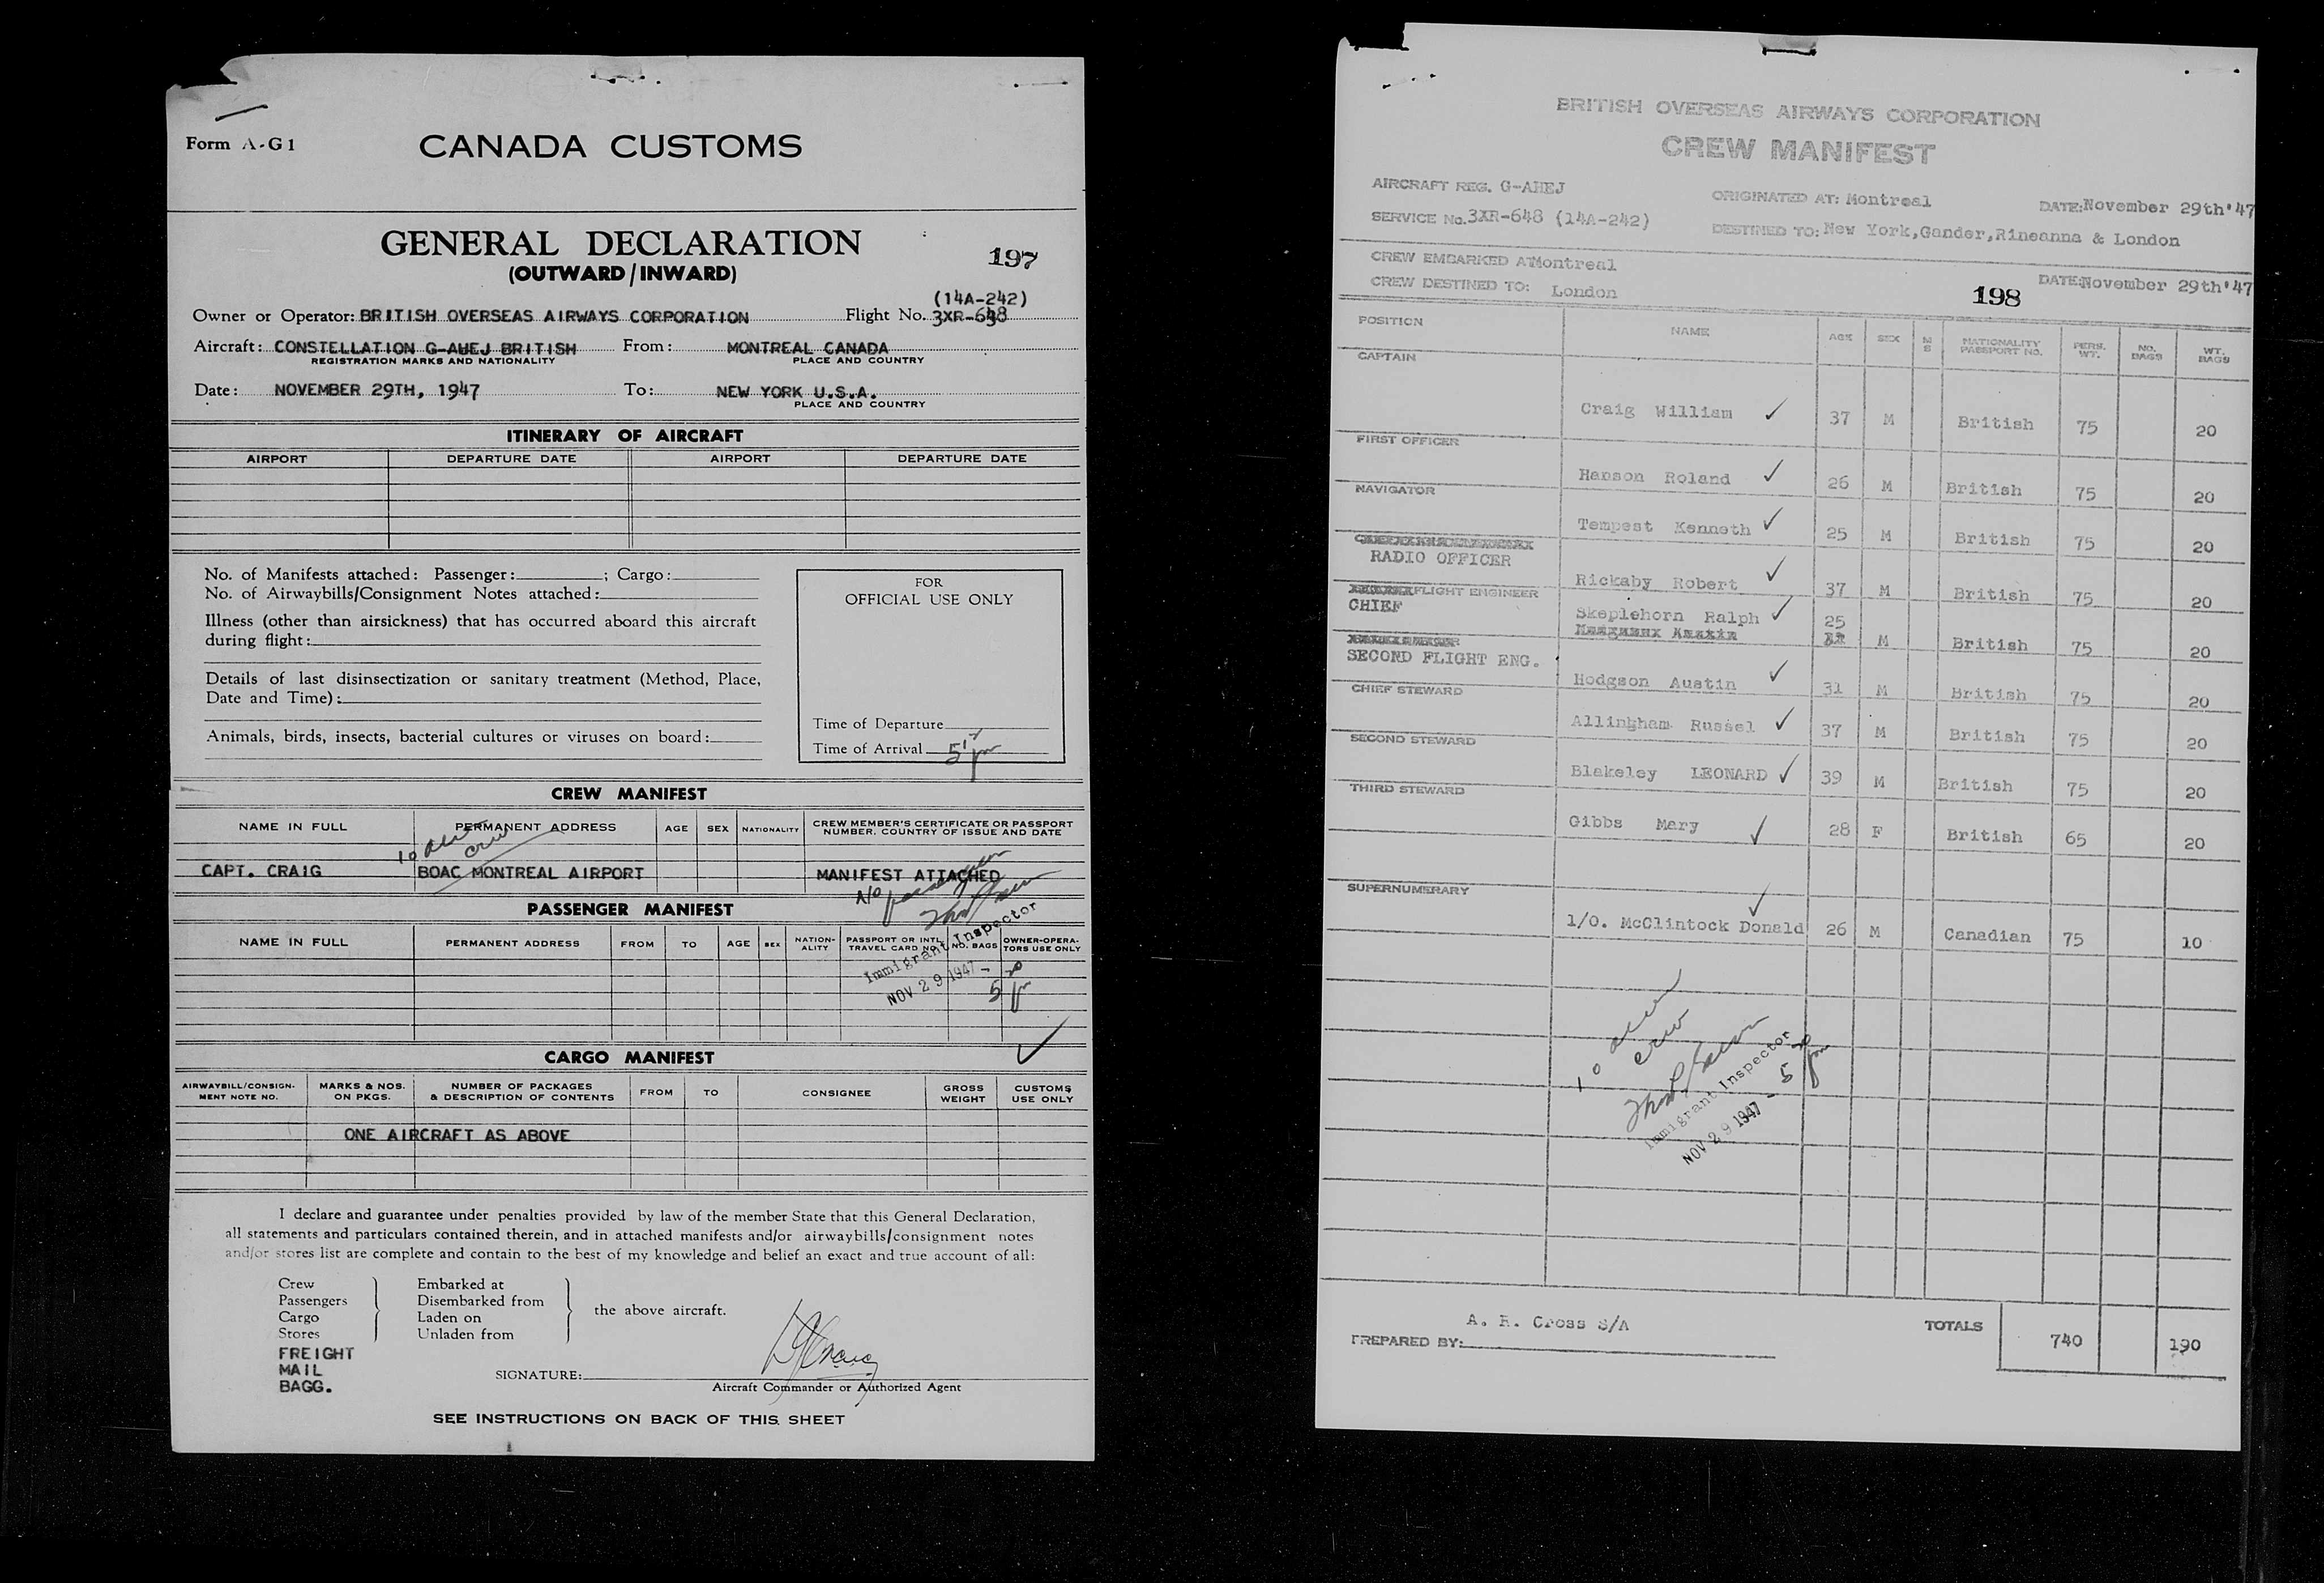 Form A-G1
CANADA CUSTOMS
GENERAL DECLARATION
(OUTWARD/INWARD)
197
(14A-242)
Owner or Operator: BRITISH OVERSEAS AIRWAYS CORPORATION Flight No. 3XR-648
Aircraft: CONSTELLATION G-AHEJ BRITISH From: MONTREAL CANADA
REGISTRATION MARKS AND NATIONALITY PLACE AND COUNTRY
Date: NOVEMBER 29TH, 1947 To: NEW YORK U.S.A.
PLACE AND COUNTRY
ITINERARY OF AIRCRAFT
AIRPORT DEPARTURE DATE AIRPORT DEPARTURE DATE
No. of Manifests attached: Passenger: ; Cargo:
No. of Airwaybills/Consignment Notes attached:
Illness (other than airsickness) that has occurred aboard this aircraft
during flight:
Details of last disinsectization or sanitary treatment (Method, Place,
Date and Time):
Animals, birds, insects, bacterial cultures or viruses on board:
FOR
OFFICIAL USE ONLY
Time of Departure
Time of Arrival 5 pm
CREW MANIFEST
NAME IN FULL PERMANENT ADDRESS AGE SEX NATIONALITY CREW MEMBER'S CERTIFICATE OR PASSPORT
NUMBER, COUNTRY OF ISSUE AND DATE
10 alien
crew
CAPT. CRAIG BOAC MONTREAL AIRPORT MANIFEST ATTACHED
No passengers
PASSENGER MANIFEST
NAME IN FULL PERMANENT ADDRESS FROM TO AGE SEX NATION-
ALITY PASSPORT OR INTL.
TRAVEL CARD NO. NO. BAGS OWNER-OPERA-
TORS USE ONLY
Immigrant Inspector
NOV 29 1947 - 5 pm
CARGO MANIFEST
AIRWAYBILL/CONSIGN-
MENT NOTE NO. MARKS & NOS.
ON PKGS. NUMBER OF PACKAGES
& DESCRIPTION OF CONTENTS FROM TO CONSIGNEE GROSS
WEIGHT CUSTOMS
USE ONLY
ONE AIRCRAFT AS ABOVE
I declare and guarantee under penalties provided by law of the member State that this General Declaration,
all statements and particulars contained therein, and in attached manifests and/or airwaybills/consignment notes
and/or stores list are complete and contain to the best of my knowledge and belief an exact and true account of all:
Crew Embarked at
Passengers Disembarked from
Cargo Laden on
Stores Unladen from
the above aircraft.
FREIGHT
MAIL
BAGG.
SIGNATURE:
Aircraft Commander or Authorized Agent
SEE INSTRUCTIONS ON BACK OF THIS SHEET
BRITISH OVERSEAS AIRWAYS CORPORATION
CREW MANIFEST
AIRCRAFT REG. G-AHEJ ORIGINATED AT: Montreal DATE: November 29th'47
SERVICE No. 3XR-648 (14A-242) DESTINED TO: New York, Gander, Rineanna & London
CREW EMBARKED AT Montreal DATE: November 29th'47
CREW DESTINED TO: London
198
POSITION NAME AGE SEX M S NATIONALITY PASSPORT NO. PERS. WT. NO. BAGS WT. BAGS
CAPTAIN
Craig William 37 M British 75 20
FIRST OFFICER
Hanson Roland 26 M British 75 20
NAVIGATOR
Tempest Kenneth 25 M British 75 20
RADIO OFFICER
Rickaby Robert 37 M British 75 20
FLIGHT ENGINEER
CHIEF
Skeplehorn Ralph 25 M British 75 20
SECOND FLIGHT ENG.
Hodgson Austin 31 M British 75 20
CHIEF STEWARD
Allingham Russel 37 M British 75 20
SECOND STEWARD
Blakeley LEONARD 39 M British 75 20
THIRD STEWARD
Gibbs Mary 28 F British 65 20
SUPERNUMERARY
1/O. McClintock Donald 26 M Canadian 75 10
10 alien
crew
Immigrant Inspector
NOV 29 1947 - 5 pm
A. R. Cross S/A
PREPARED BY:
TOTALS 740 190